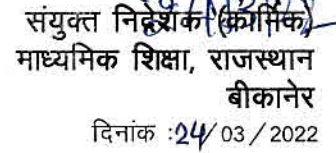 संयुक्त निदेशक (कार्मिक)
माध्यमिक शिक्षा, राजस्थान
बीकानेर
दिनांक :24/03/2022